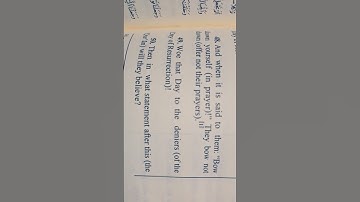 48. And when it is said to them: "Bow
down yourself (in prayer)!" They bow not
down (offer not their prayers). [1]
49. Woe that Day to the deniers (of the
Day of Resurrection)!
50. Then in what statement after this (the
Qur'an) will they believe?